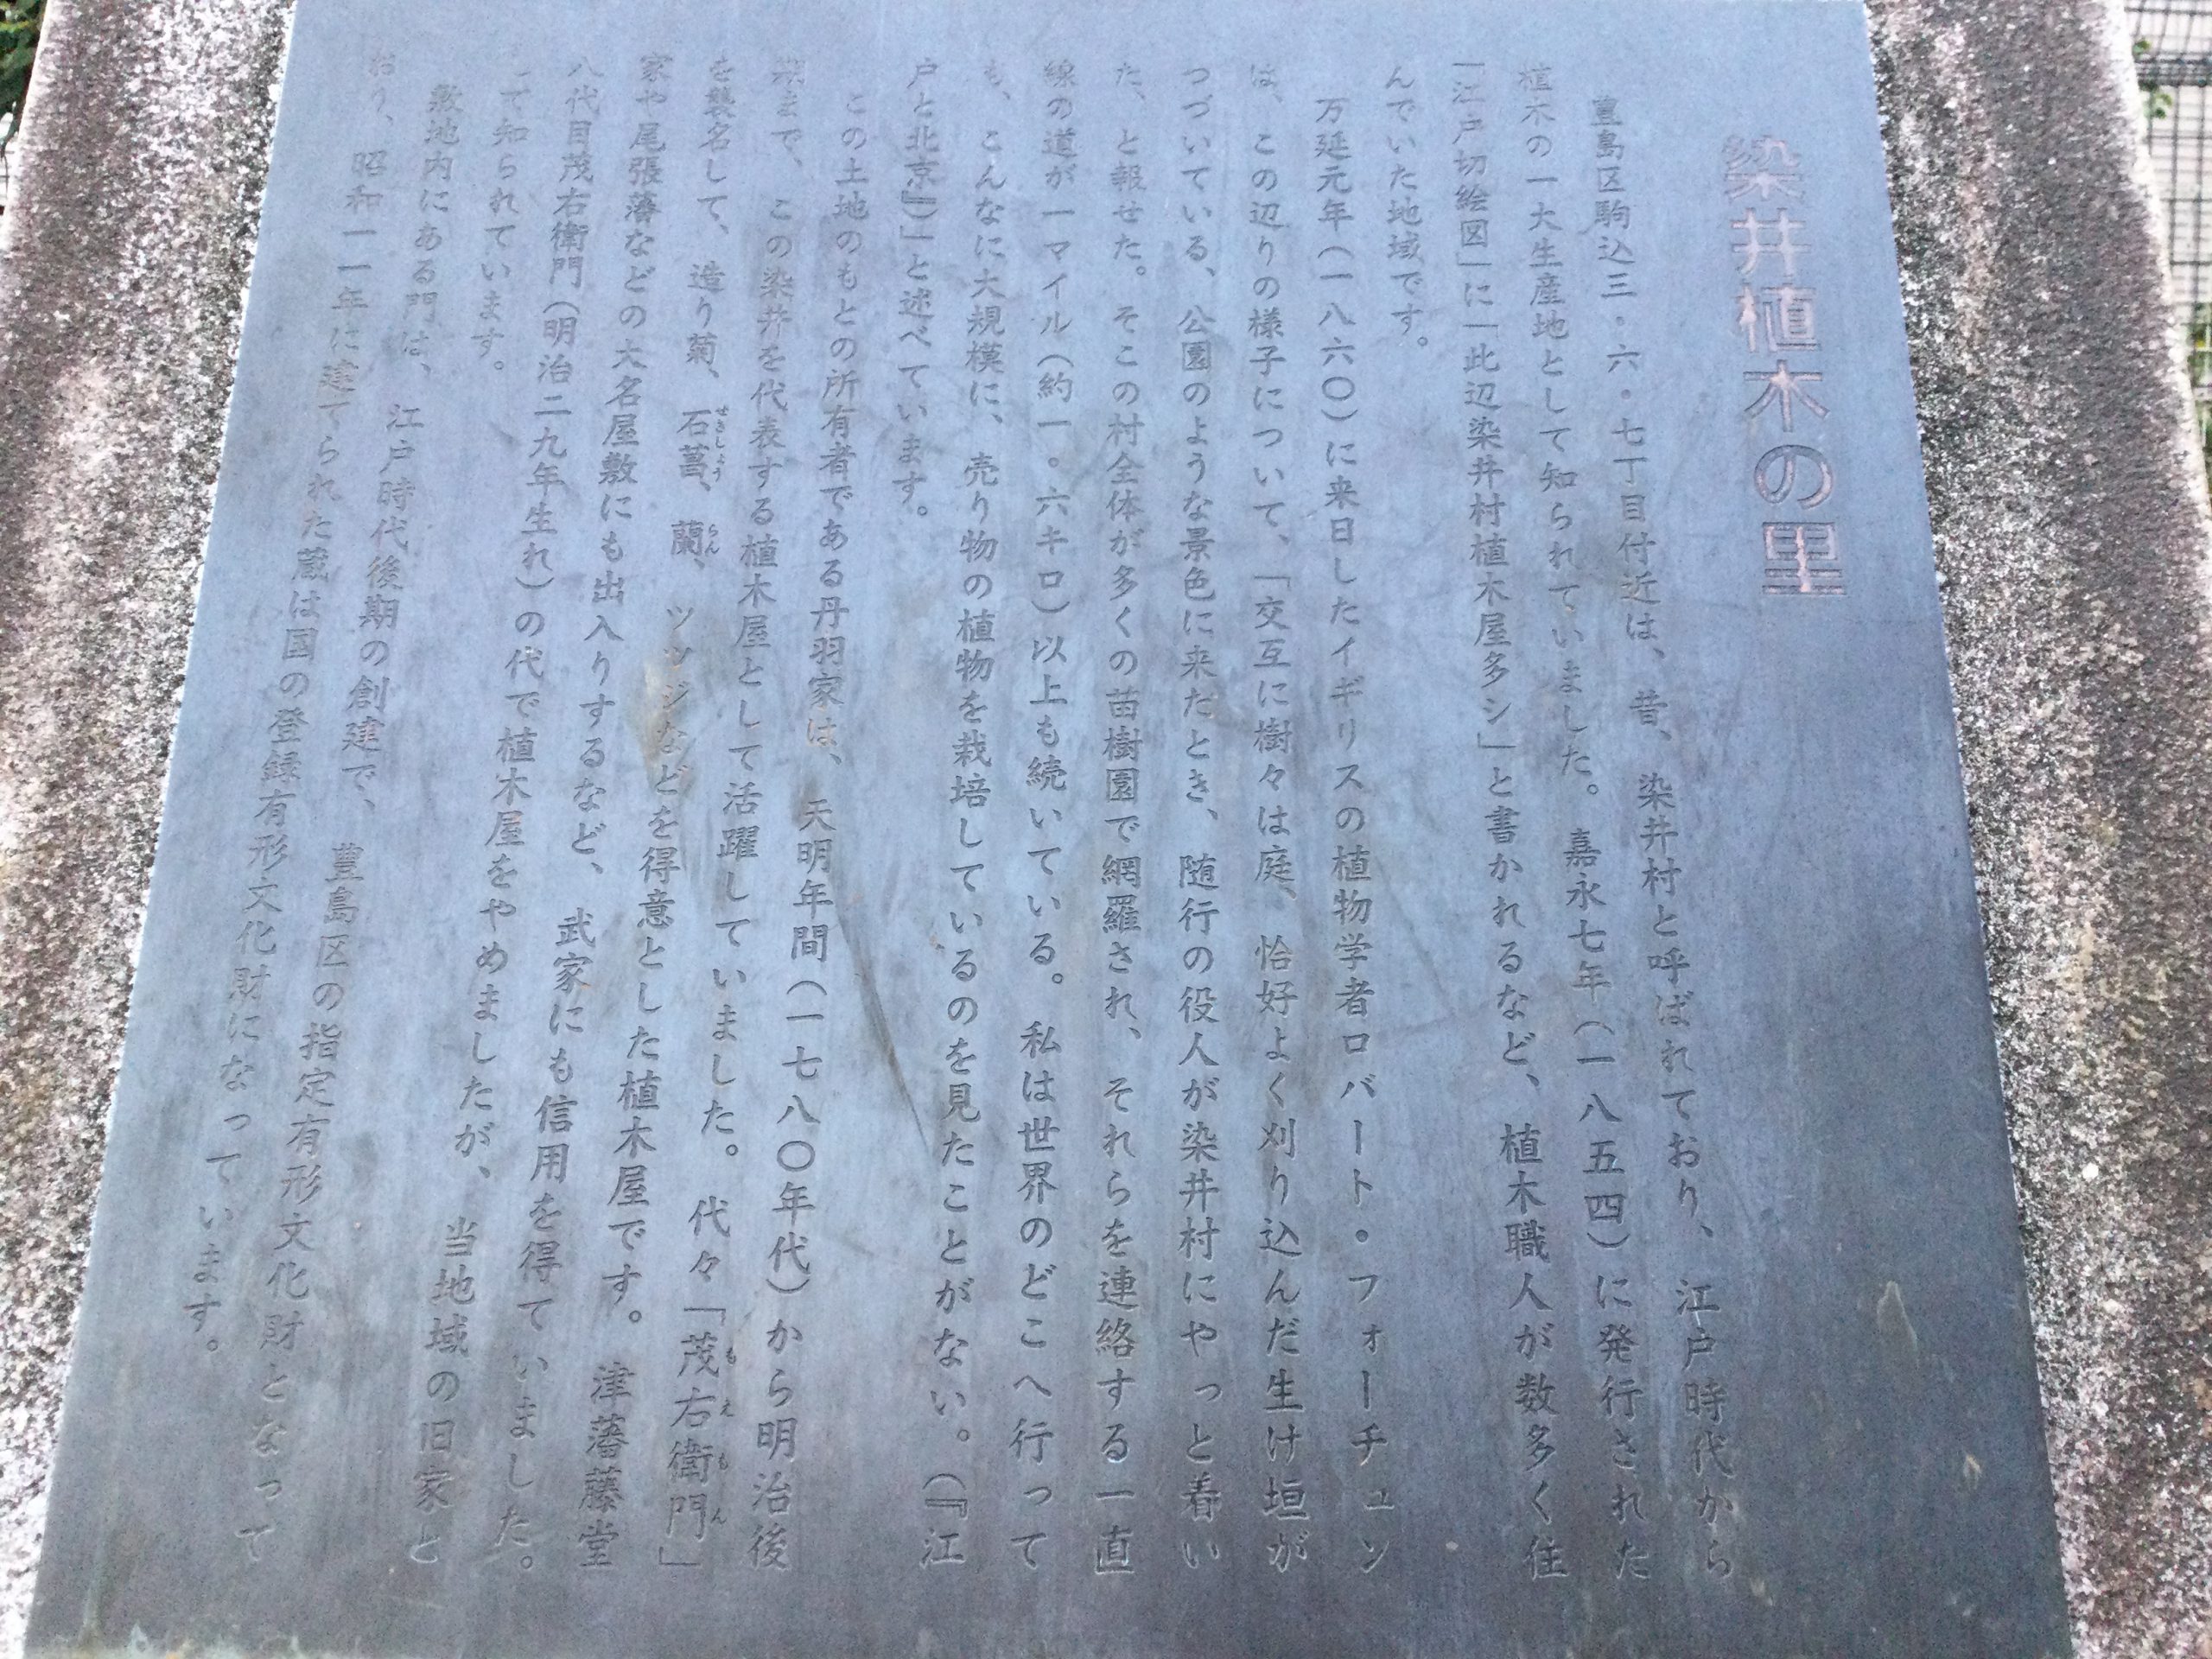 染井植木の里
豊島区駒込三・六・七丁目付近は、昔、染井村と呼ばれており、江戸時代から
植木の一大生産地として知られていました。嘉永七年(一八五四)に発行された
「江戸切絵図」に「此辺染井村植木屋多シ」と書かれるなど、植木職人が数多く住
んでいた地域です。
万延元年(一八六〇)に来日したイギリスの植物学者ロバート・フォーチュン
は、この辺りの様子について、「交互に樹々は庭、恰好よく刈り込んだ生け垣が
つづいている、公園のような景色に来たとき、随行の役人が染井村にやっと着い
た、と報せた。そこの村全体が多くの苗樹園で網羅され、それらを連絡する一直
線の道が一マイル(約一。六キロ)以上も続いている。私は世界のどこへ行って
も、こんなに大規模に、売り物の植物を栽培しているのを見たことがない。(『江
戸と北京』)」と述べています。
この土地のもとの所有者である丹羽家は、天明年間(一七八〇年代)から明治後
期まで、この染井を代表する植木屋として活躍していました。代々「茂右衛門」
を襲名して、造り菊、石菖、蘭、ツツジなどを得意とした植木屋です。津藩藤堂
家や尾張藩などの大名屋敷にも出入りするなど、武家にも信用を得ていました。
八代目茂右衛門(明治二九年生れ)の代で植木屋をやめましたが、当地域の旧家と
して知られています。
敷地内にある門は、江戸時代後期の創建で、豊島区の指定有形文化財となって
おり、昭和一一年に建てられた蔵は国の登録有形文化財になっています。